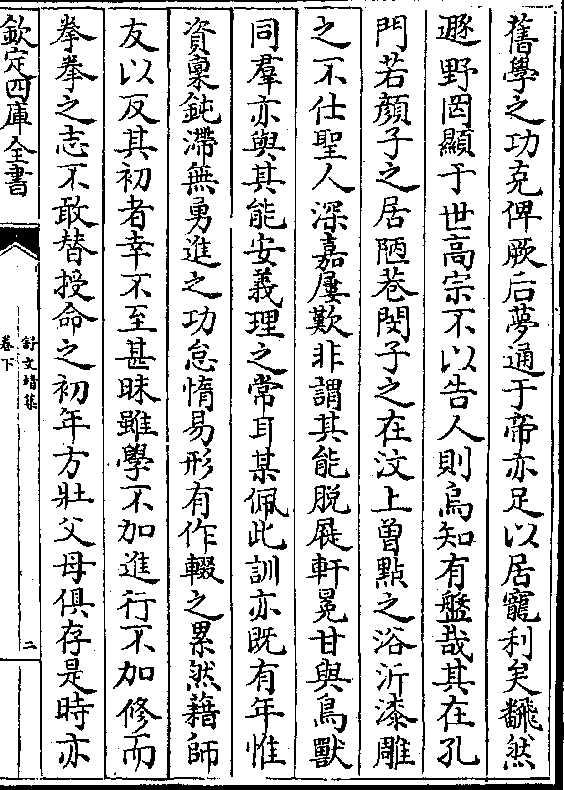 舊學之功克俾厥后夢通于帝亦足以居寵利矣飜然
遯野罔顯于世髙宗不以告人則烏知有盤哉其在孔
門若顔子之居陋巷閔子之在汶上曾點之浴沂漆雕
之不仕聖人深嘉屢歎非謂其能脱屣軒冕甘與鳥獸
同羣亦與其能安義理之常耳某佩此訓亦既有年惟
資稟鈍滯無勇進之功怠惰易形有作輟之累然藉師
友以反其初者幸不至甚昧雖學不加進行不加修而
拳拳之志不敢替授命之初年方壯父母俱存是時亦
欽定四庫全書
舒文靖集
卷下
二